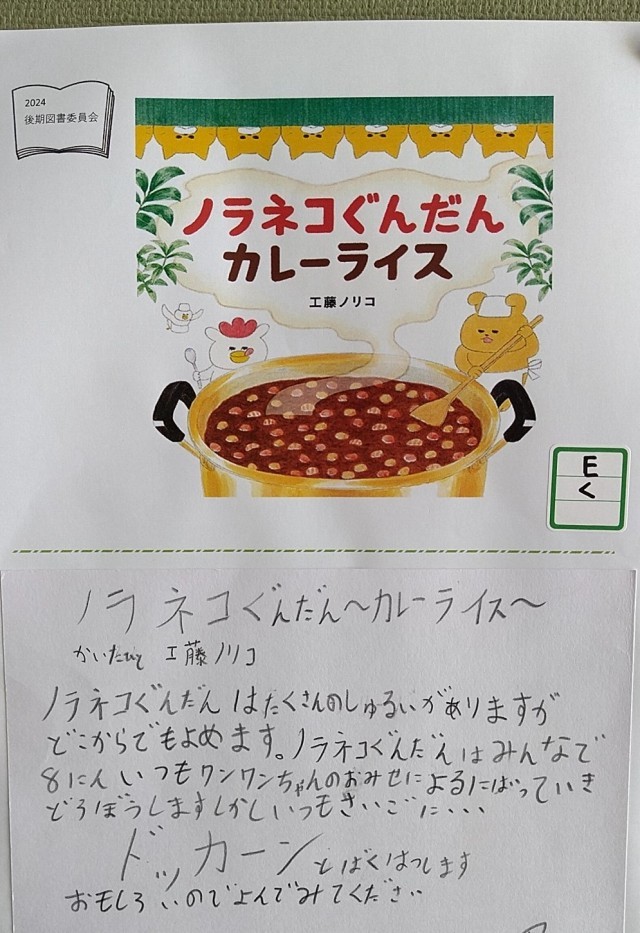 2024
後期図書委員会
ノラネコぐんだん
カレーライス
工藤ノリコ
E
く
ノラネコぐんだん～カレーライス～
かいたひと 工藤ノリコ
ノラネコぐんだんはたくさんのしゅるいがありますが
どこからでもよめます。ノラネコぐんだんはみんなで
8にんいつもワンワンちゃんのおみせによるにはっていき
どろぼうしますしかしいつもさいごに、、、
ドッカーンとばくはつします
おもしろいのでよんでみてください